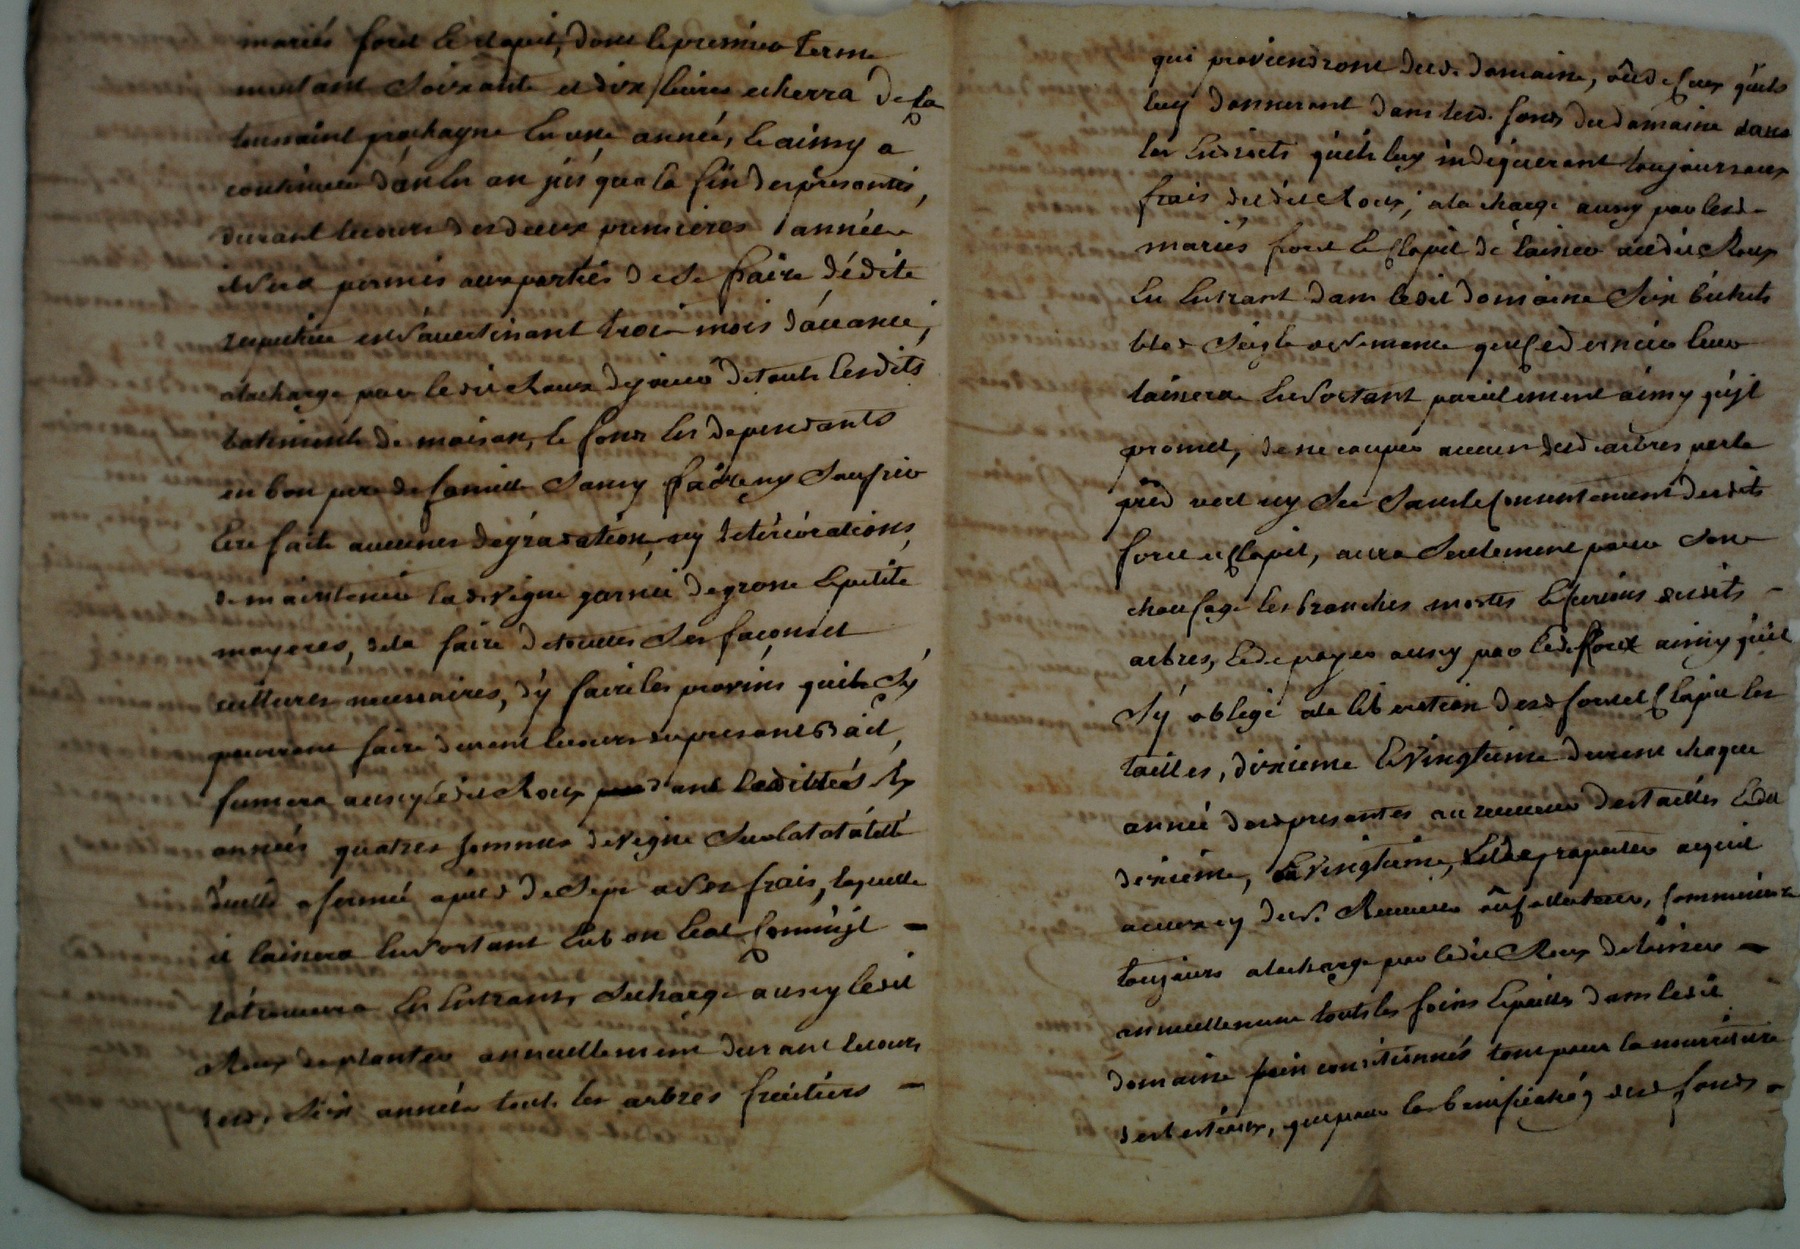 mariés foret et clapit, dont le premier terme
montant soixante et dix livres echerra de la
toussaint prochayne en une année, et ainsy a
continuer d'an en an jus'qua la fin des présantes,
durant le cours des deux premières année
il sera permis aux parties de se faire dédite
respective en s'avertissant trois mois d'avance,
a la charge par ledit Roux de jouir de touts lesdits
batiments de maison, le fonds en dependants
en bon pere de famille sans y faire ny soufrir
être faite aucunes dégradation, ny détériorations,
de maintenir lad. vigne garnie de grosse et petite
mayeres, de la faire de toutes ses façons et
cultures necessaires, d'y faire les provins qui s'y
pourront faire durant le cours du present Bail,
fumera aussy ledit Roux pendant lesdittes six
années quatres hommes de vigne sur la totalité
d'icelle a ses frais, laquelle
il laissera en sortant en bon état comm'jl
la trouvera en entrant, se charge aussy ledit
Roux de planter annuellement durant le cours
desd. six année touts les arbres fruitiers
qui proviendront dud. domaine, où de ceux qu'ils
luy donneront dans lesd. fonds du domaine dans
les endroits qu'ils luy indiqueront toujours aux
frais dudit Roux, a la charge aussy par lesd.
mariés foret et Clapit de laisser audit Roux
en entrant dans ledit domaine six bichets
bled seigle semence que ce dernier leur
laissera en sortant pareillement ainsy qu'jl
promet, de ne couper aucun desd. arbres par le
pied vert ny sec sans le consentement desdits
foret et Clapit, aura seulement pour son
chaufage les branches mortes et curions desdits
arbres, et de payer aussy par led. ainsy qu'il
s'y oblige a la libération desd. foret et Clapit les
tailles, dixieme et vingtieme durant chaque
année des presentes au receveur des tailles et du
dixième, et vingtieme, et de rapporter aquit
a ceux cy dud. Receveur où collecteur, comm'encore
toujours a la charge par ledit Roux de laisser
annuellement touts les foins et pailles dans ledit
domaine pour la nourriture
des bestiaux, que pour les desd. fonds